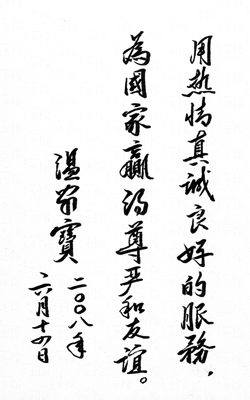 用热情真誠良好的服務，
為國家贏得尊严和友誼。
温家寶
二〇〇八年
六月十四日